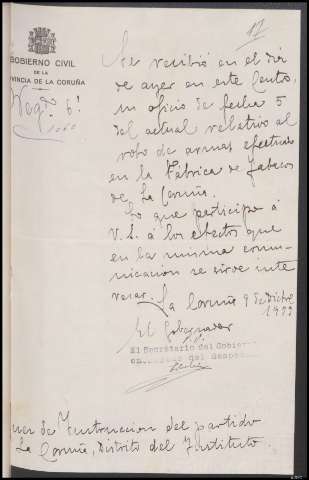 17
GOBIERNO CIVIL
DE LA
PROVINCIA DE LA CORUÑA
Negdo. 6º
Se recibió en el día
de ayer en este Centro,
un oficio de fecha 5
del actual relativo al
robo de armas efectuado
en la Fábrica de Tabacos
de La Coruña.
Lo que participo á
V.S. á los efectos que
en la misma comu-
nicación se sirve inte
resar. La Coruña 9 de Dicbre
El Gobernador
El Secretario del Gobierno
del Despacho
Juez de Instruccion del partido
La Coruña, Distrito del Instituto.